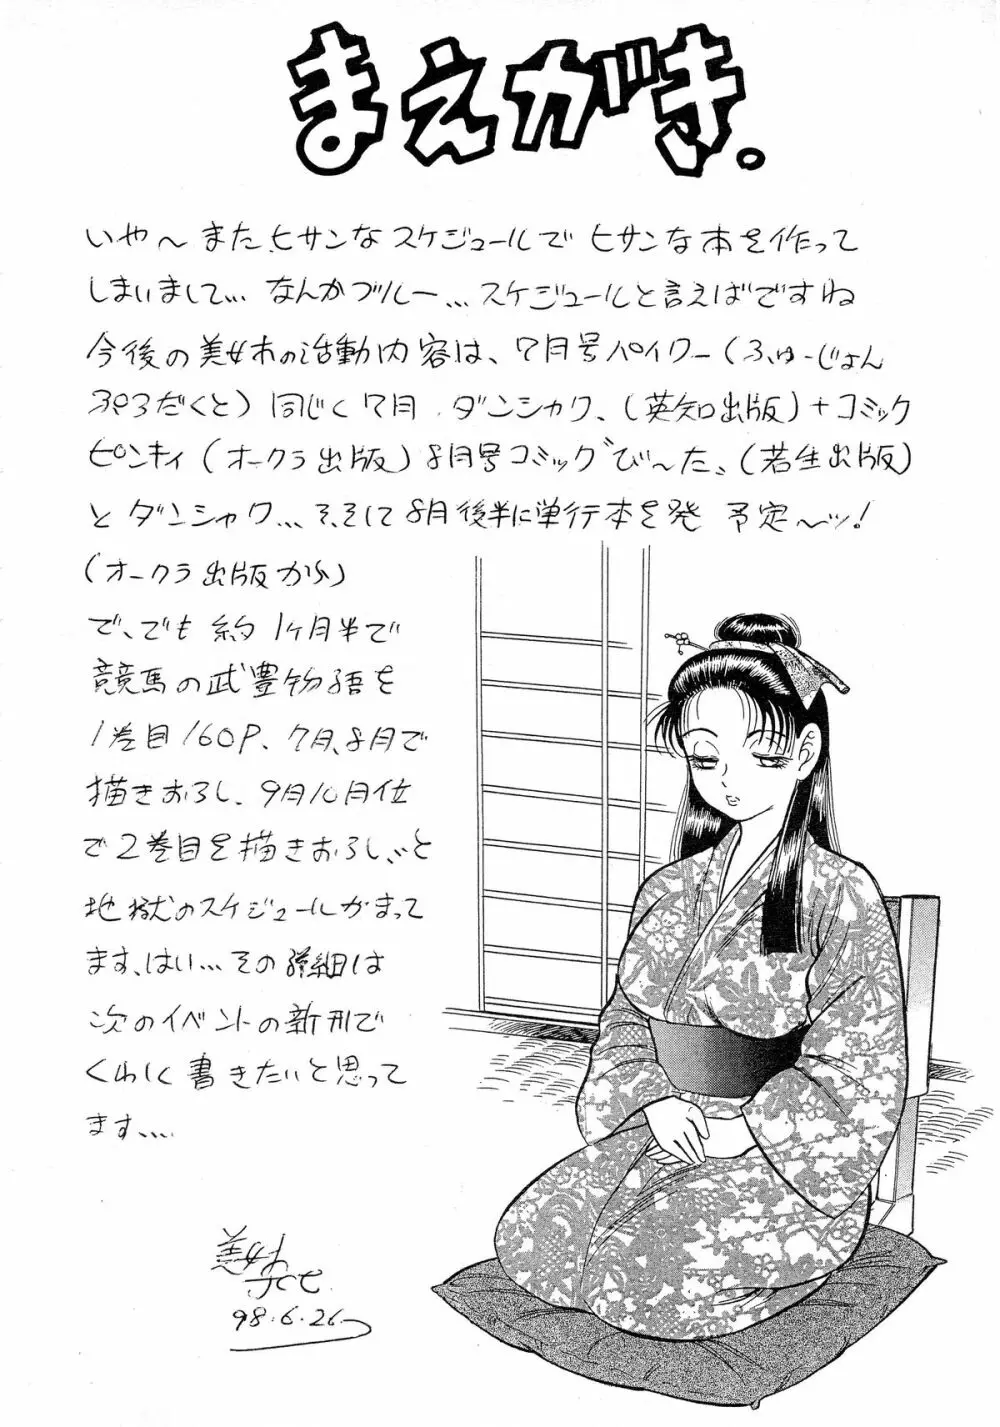 まえがき。
いや〜また、ヒサンなスケジュールでヒサンな本を作って
しまいまして… なんかブルー…スケジュールと言えばですね
今後の美女木の活動内容は、7月号パイワー(ふゅーじょん
ぷろだくと)同じく7月 ダンシャク、(英知出版)+コミック
ピンキィ(オークラ出版)8月号コミックび〜た、(若生出版)
とダンシャク…そ、そして8月後半に単行本を発 予定〜ッ!
(オークラ出版から)
で、でも 約1ヶ月半で
競馬の武豊物語を
1巻目160P、7月、8月で
描きおろし、9月10月位
で2巻目を描きおろし、と
地獄のスケジュールがまって
ます、はい…その詳細は
次のイベントの新刊で
くわしく書きたいと思って
ます….
美女木
98.6.26